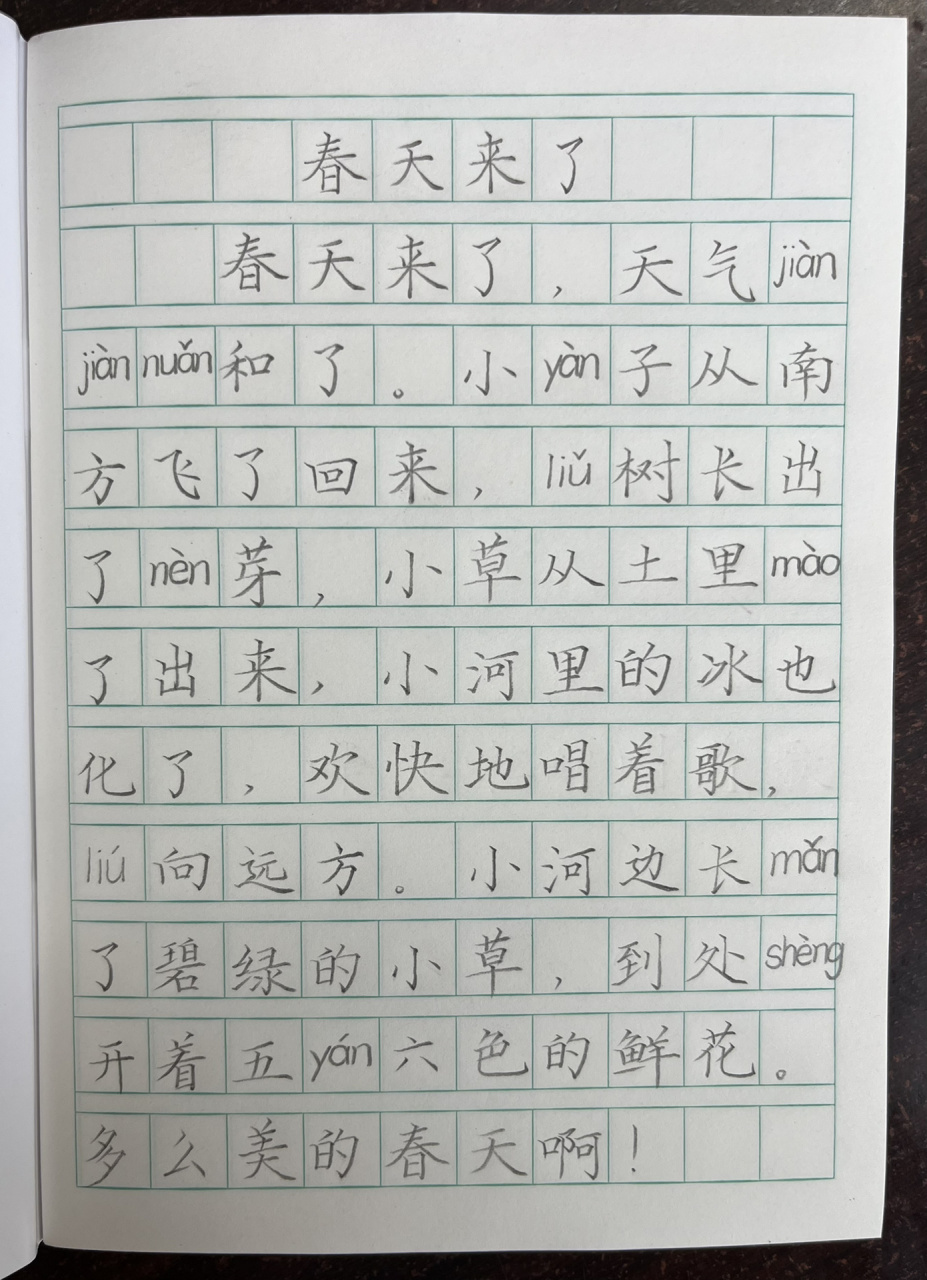 春天来了
春天来了，天气jiàn
jiàn nuǎn和了。小yàn子从南
方飞了回来，liǔ树长出
了nèn芽，小草从土里mào
了出来，小河里的冰也
化了，欢快地唱着歌，
liú向远方。小河边长mǎn
了碧绿的小草，到处shèng
开着五yán六色的鲜花。
多么美的春天啊！